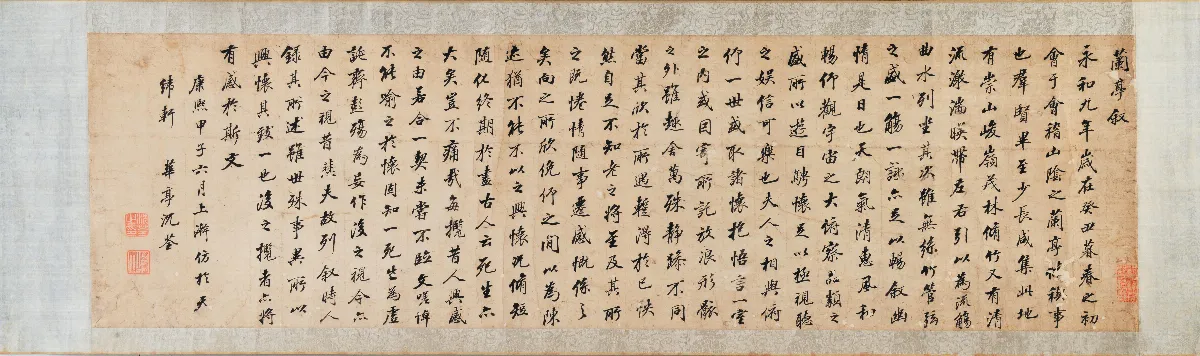 蘭亭叙
永和九年歲在癸丑暮春之初
會于會稽山陰之蘭亭脩禊事
也羣賢畢至少長咸集此地
有崇山峻嶺茂林脩竹又有清
流激湍暎帶左右引以為流觴
曲水列坐其次雖無絲竹管弦
之盛一觴一詠亦足以暢叙幽
情是日也天朗氣清惠風和
暢仰觀宇宙之大俯察品類之
盛所以遊目騁懷足以極視聽
之娛信可樂也夫人之相與俯
仰一世或取諸懷抱悟言一室
之內或因寄所託放浪形骸
之外雖趣舍萬殊静躁不同
當其欣於所遇輕得於己怏
然自足不知老之將至及其所
之既惓情隨事遷感慨係之
矣向之所欣俛仰之間以為陳
迹猶不能不以之興懷況脩短
隨化終期於盡古人云死生亦
大矣豈不痛哉每攬昔人興感
之由若合一契未嘗不臨文嗟悼
不能喻之於懷固知一死生為虛
誕齊彭殤為妄作後之視今亦
由今之視昔悲夫故列叙時人
錄其所述雖世殊事異所以
興懷其致一也後之攬者亦將
有感於斯文
康熙甲子六月上澣仿於天
緯軒 華亭沈荃